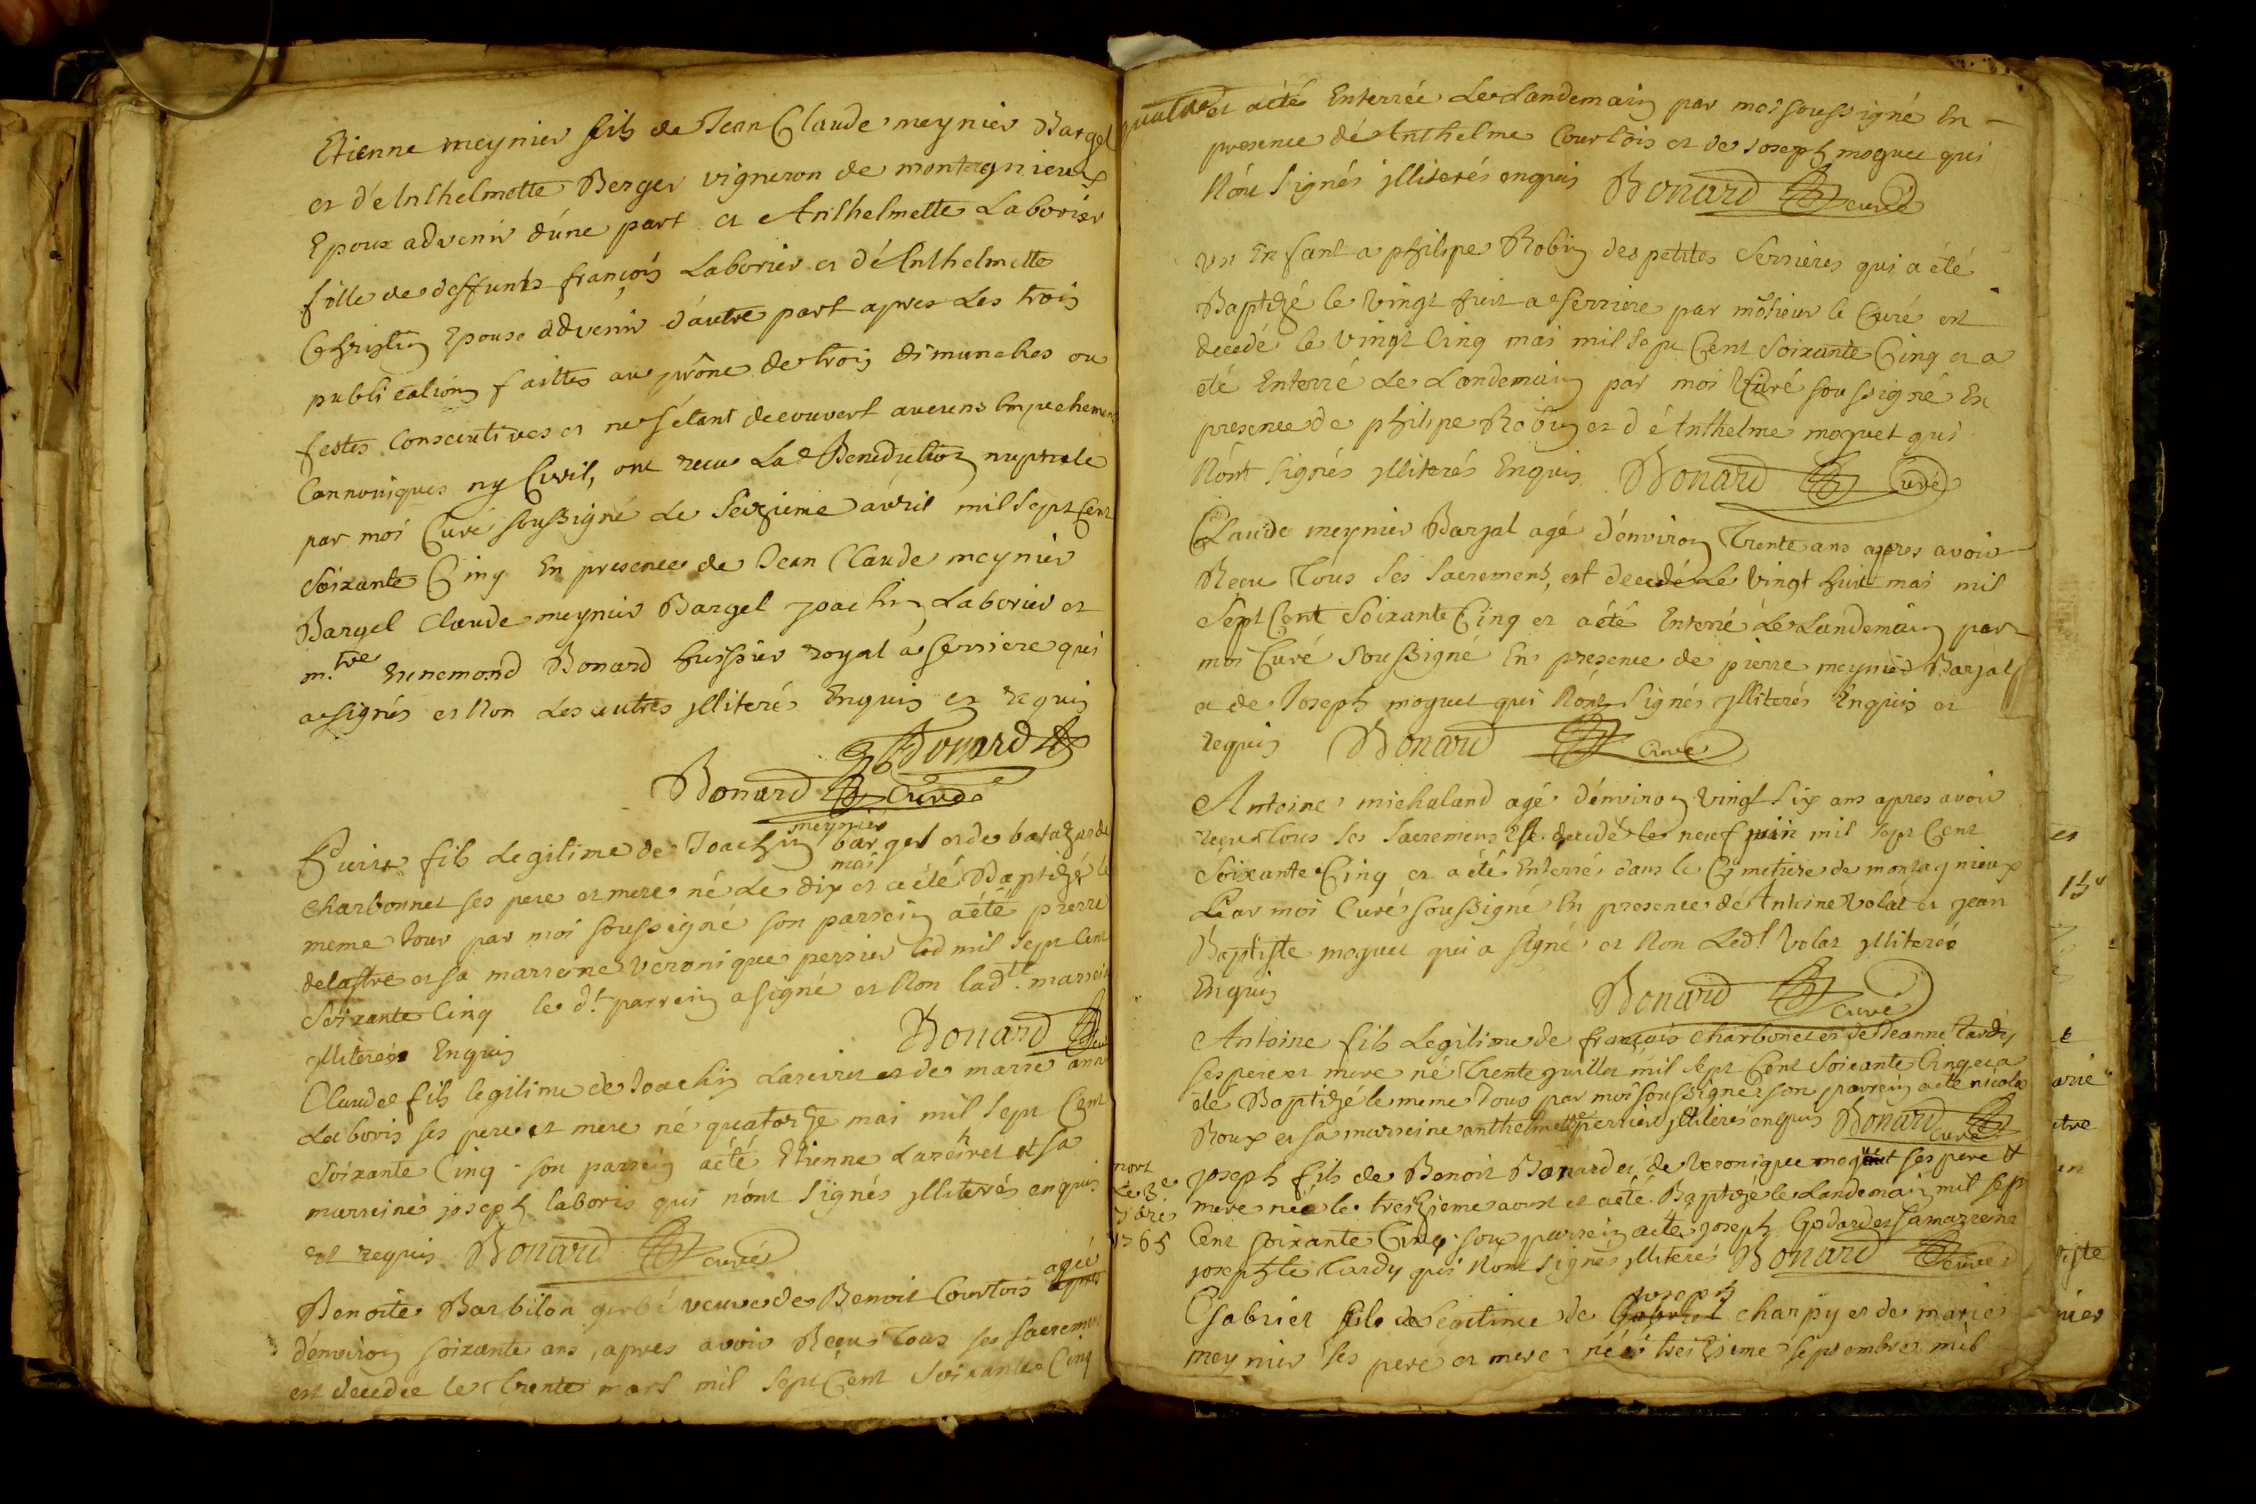 Etienne meynier fils de Jean Claude meynier Bargel
et d'Enthelmette Berger vigneron de montagnieux
Epoux advenir d'une part et Anthelmette Laborier
fille de deffunts françois Laborier et d'Enthelmette
Christin Epouse advenir d'autre part apres les trois
publication faittes au prône de trois dimunches ou
festes Consecutives et ne s'étant decouvert aucuns Empechement
Cannoniques ny Civil, ont recu La Benediction nuptiale
par moi Curé soussigné Le Seizieme avril mil sept Cent
Soixante Cinq En presence de Jean Claude meynier
Bargel Claude meynier Bargel joachin Laborier et
m.tre Ennemond Bonard huissier royal a serriere qui
a signés et Non Les autres jlliterés Enquis et requis
Bonard
Bonard Curé
Pierre fils Legitime de Joachin meynier bargel et de
Charbonnet ses pere et mere né Le dix mai et a été Baptizé le
meme Jour par moi soussigné son parrein a été pierre
delastre et sa marreine veronique perrier mil sept Cent
Soixante Cinq le d.t parrein a signé et Non lad.te marreine
jlliterée Enquis Bonard
Claude fils legitime de Joachin Lareiret et de marie anne
Laboris ses pere et mere né quatorze mai mil sept Cent
Soixante Cinq son parrein a été Etienne Lareiret et sa
marreine joseph laboris qui n'ont signés jlliterés enquis
et requis Bonard curé
Benoite Barbilon veuve de Benoit Courtois agée
d'environ soixante ans, apres avoir Recu Tous ses sacremens
est decedée le Trente mars mil sept Cent Soixante Cinq
quatre et a été Enterrée Le Landemain par moi soussigné En
presence d'Anthelme Courtois et de Joseph moguet qui
N'ont signés jlliterés enquis Bonard curé
un Enfant a philipe Robin des petites Serrieres qui a été
Baptizé le vingt huit a serriere par mosieur le Curé est
decedé le vingt Cinq mai mil sept Cent Soixante Cinq et a
été Enterré Le Landemain par moi Curé soussigné En
presence de philipe Robin et d'Anthelme moguet qui
N'ont signés jlliterés Enquis Bonard Curé
Claude meynier Barjal agé d'environ Trente ans apres avoir
Recu Tous ses sacremens, est decedé Le vingt huit mai mil
sept Cent Soixante Cinq et a été Enterré Le Landemain par
moi Curé soussigné En presence de pierre meynier Barjal
et de Joseph moguet qui N'ont signés jlliterés Enquis et
requis Bonard Curé
Antoine michaland agé d'environ vingt six ans apres avoir
recu tous ses sacremens est decedé le neuf juin mil sept Cent
Soixante Cinq et a été Enterré dans le Cimetiere de montagnieux
Par moi Curé soussigné En presence d'Antoine Volat et jean
Baptiste moguet qui a signé et Non Led.t Volat jlliteré
Enquis Bonard Curé
Antoine fils Legitime de françois Charbonet et de Jeanne Tardy
ses pere et mere né Trente juillet mil sept Cent Soixante Cinq et a
été Baptizé le meme Jour par moi soussigné son parrein a été nicolas
Roux et sa marreine anthelmette perrier jlliterés enquis Bonard Curé
mort
1765
joseph fils de Benoit Bonard et de Veronique moguet ses pere et
mere né le treizieme aoust et a été Baptizé le Landemain mil sept
Cent soixante Cinq son parrein a été joseph Godard et sa mareine
josephte Tardy qui N'ont signés jlliterés Bonard Curé
Gabriel fils Legitime de joseph Gabriel charpy et de marie
meynier ses pere et mere né treizieme septembre mil